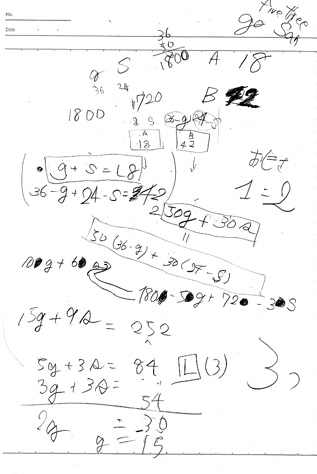 No.
Date
five three
go San
36
50
1800
g S A 18
36 24
1800 720 B 42
g s 36-g 24-s
A B
18 42
g + s = 18
36-g+24-s=42
1 = 2
2 50g + 30s
=
50(36-g)+30(24-s)
100g + 60s
1800-50g+720-30s
15g + 9s = 252
5g + 3s = 84 L (3)
3g + 3s = 54
2g = 30
g = 15
3,